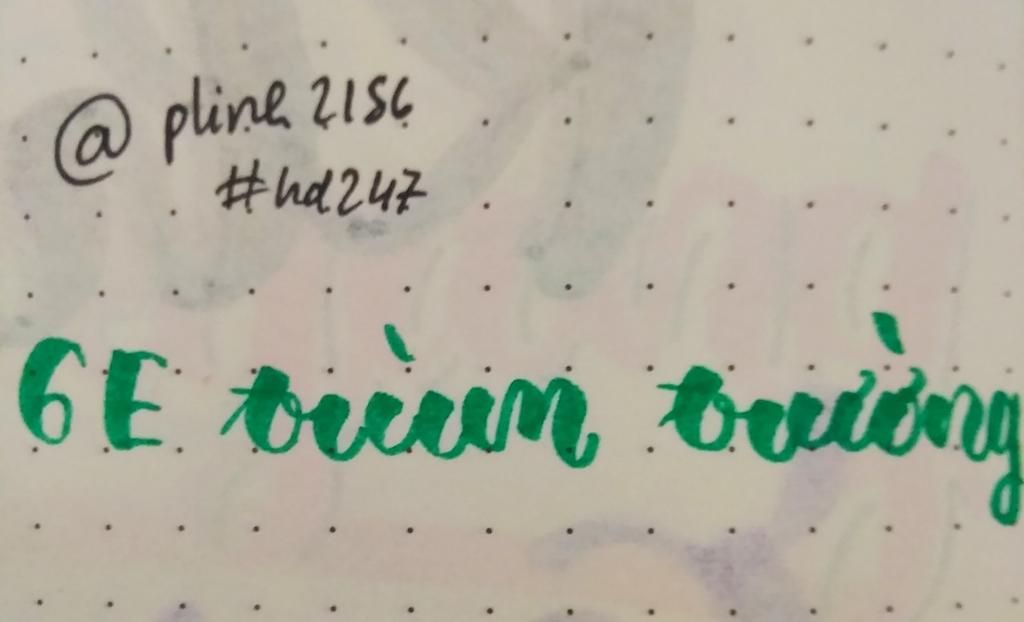 @ pline2156
#hd247
6E trùm trường